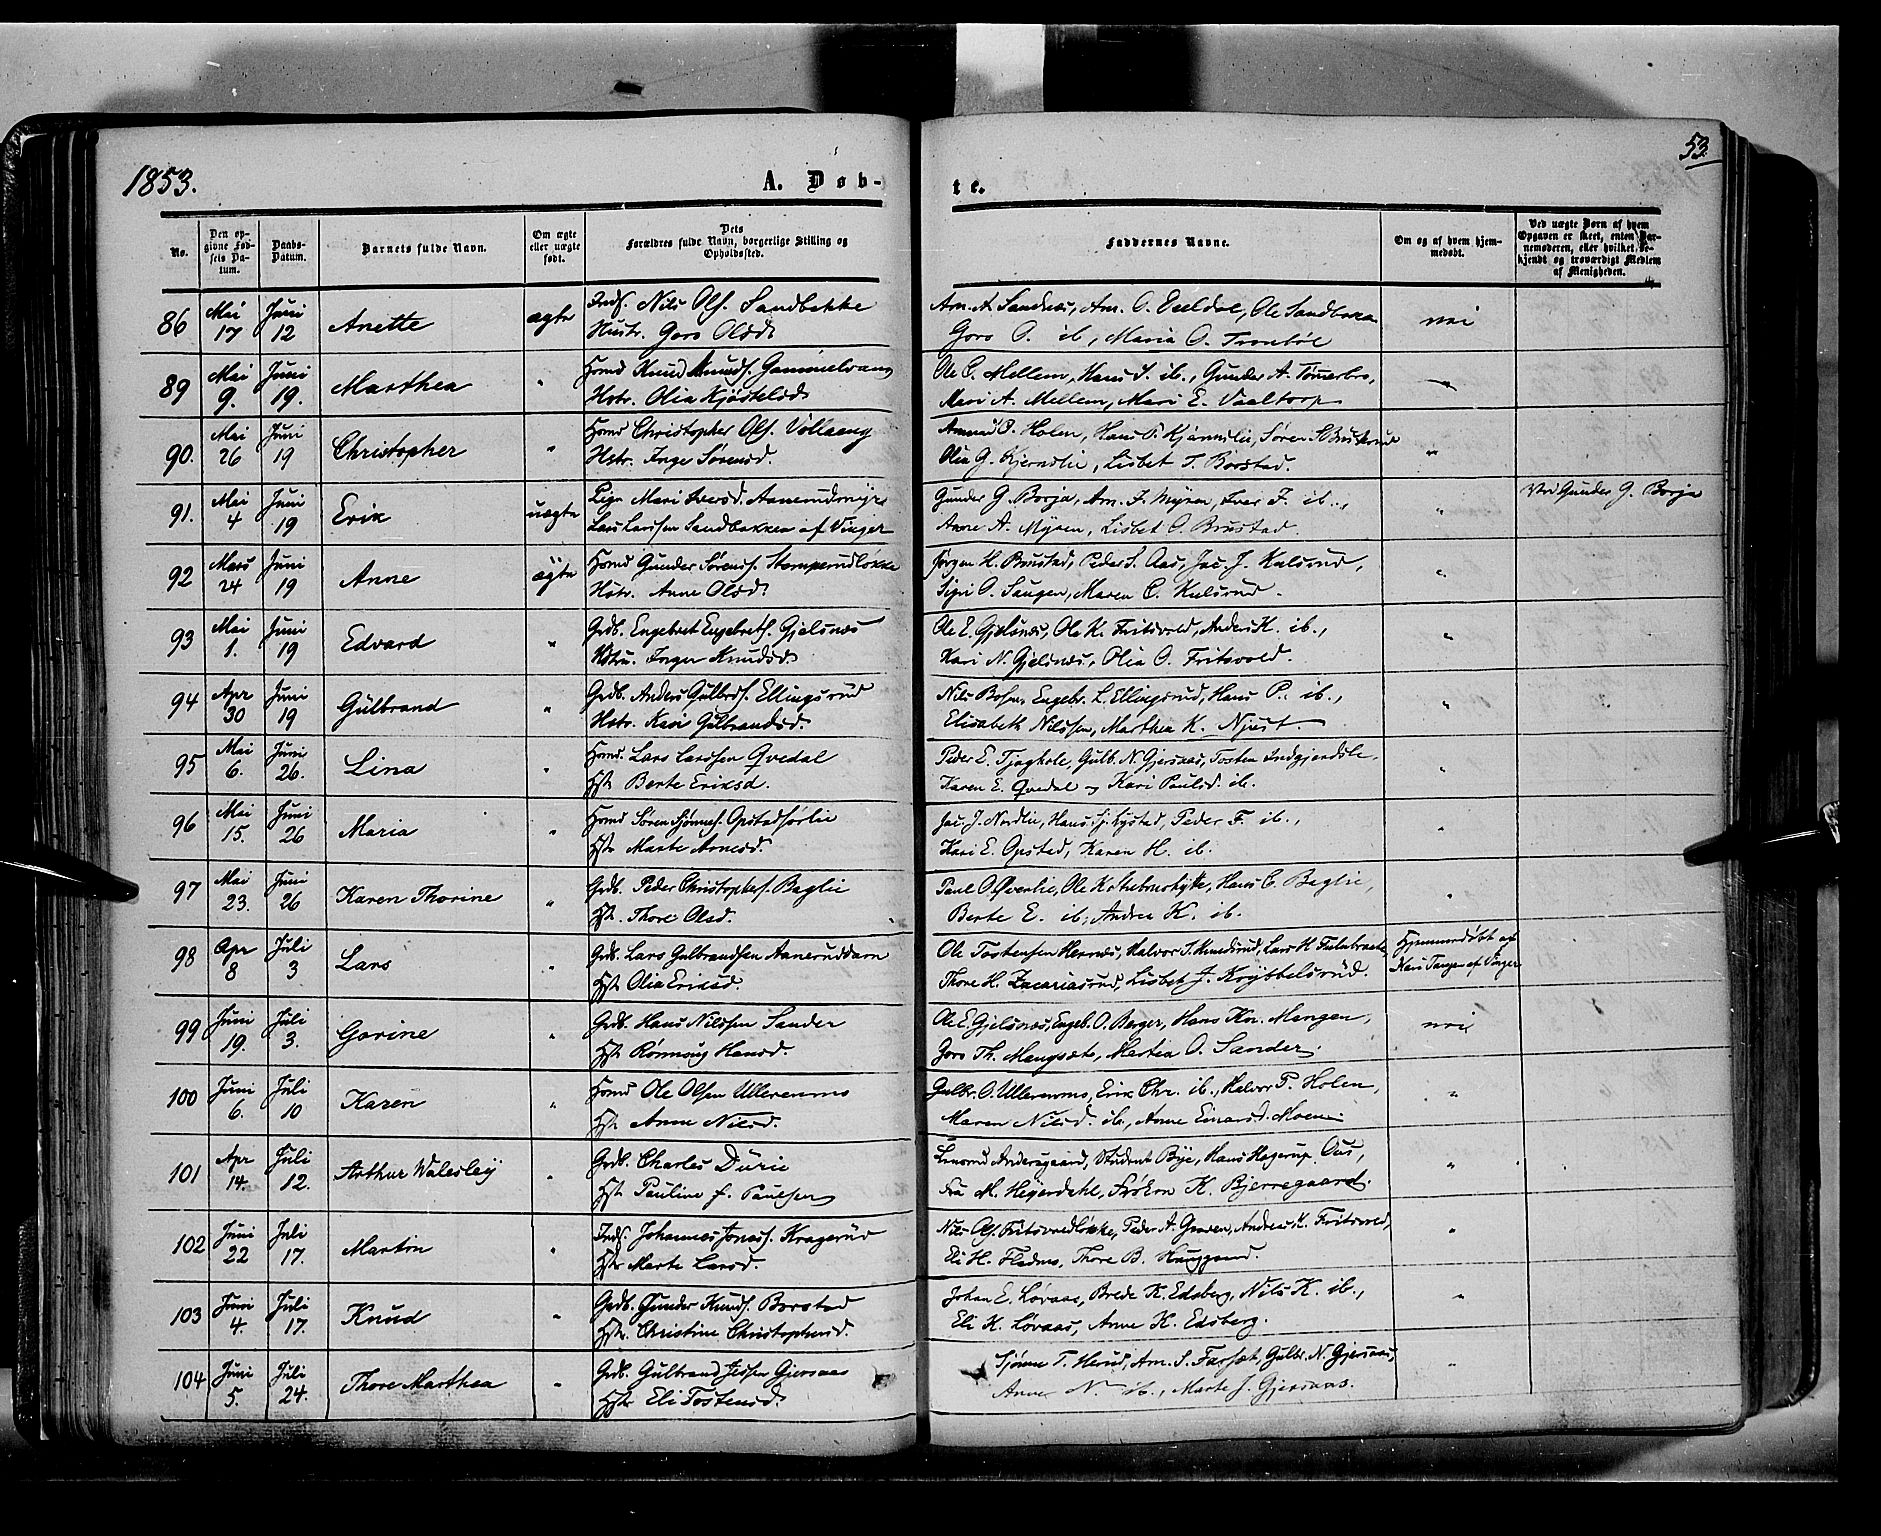 1853.
A. Døb-
te.
53.
No.
Den opgivne Fødsels Datum.
Daabs-Datum.
Barnets fulde Navn.
Om ægte eller uægte født.
Dets Forældres fulde Navn, borgerlige Stilling og Opholdssted.
Faddernes Navne.
Om og af hvem hjemmedøbt.
Ved uægte Børn af hvem Opgaven er skeet, enten Barnemoderen, eller hvilket bekjendt og troværdigt Medlem af Menigheden.
86 Mai 17 Juni 12 Anette ægte Inds. Nils Ols. Sandbakke
Hustr. Goro Olsd.
Am. A. Sandnes, Am. O. Ole Sandbakke
Goro O. ib, Maria O. Tronbøl
nei
89 Mai 9. Juni 19. Marthea " Hmd Knud Knuds. Gammelvang
Hstr. Olia Kjøstelsd.
Ole C. Mellem, Hans S. ib., Gunder A. Tømmerbro,
Mari A. Mellem, Mari E. Vaaltorp
"
90. Mai 26 Juni 19 Christopher " Hmd Christopher Ols. Vollaeng
Hstr. Inge Sørensd.
Amund P. Holen, Hans P. Kjærnslie, Søren S. Brustad
Olia G. Kjernslie, Lisbet T. Borstad.
"
91. Mai 4 Juni 19 Erik uægte Pige Mari Iversd. Aanerudmyre
Lars Larssen Sandbakken af Vinger
Gunder G. Borja, Am. I. Myren, Iver F. ib.,
Anne A. Myren, Lisbet O. Brustad.
"
Ved Gunder G. Borja
92 Mars 24 Juni 19 Anne ægte Hmd Gunder Sørens. Stemperudløkke
Hstr. Anne Olsd.
Jørgen H. Brustad, Peder S. Aas, Jac. J. Kulsrud,
Sigri O. Saugen, Maren C. Kulsrud.
"
93 Mai 1. Juni 19 Edvard " Grdb. Engebret Engebrets. Gjelsnes
Hstru. Inger Knudsd.
Ole E. Gjelsnes, Ole K. Fritsvold, Anders K. ib.,
Kari N. Gjelsnes, Olia O. Fritsvold.
"
94 Apr 30 Juni 19 Gulbrand " Grdb. Anders Gulbrds. Ellingsrud
Hstr. Kari Gulbrandsd.
Nils Engebr. L. Ellingsrud, Hans P. ib.,
Elisabeth Nilssen, Marthea K. Njust
"
95 Mai 6. Juni 26. Lina " Hmd. Lars Larssen Qvedal
Hst. Berte Eriksd.
Peder E. Gulb. N. Gjersaas, Tosten
Karen E. Qvedal og Kari Paulsd. ib.
"
96 Mai 15. Juni 26 Maria " Hmd Søren Sjønnes. Opstadsørlie
Hstr Marte Arnesd.
Jac. J. Nordlie, Hans Sj. Lystad, Peder F. ib.,
Kari E. Opstad, Karen H. ib.
"
97 Mai 23. Juni 26 Karen Thorine " Grdb. Peder Christophers. Baglie
Hst. Thore Olsd.
Paul O. Øverlie, Ole K. Hans C. Baglie,
Berte E. ib, Andrea K. ib.
"
98 Apr 8 Juli 3 Lars " Grdb. Lars Gulbrandsen Aaneruddam
Hst. Olia Eriksd.
Ole Tostensen Hernæs, Halvor T. Lars H.
Thore H. Zacariasrud, Lisbet J. Krystelsrud.
Hjemmedøbt af
Kari Tangen af Vinger
99 Juni 19. Juli 3. Gorine " Grdb. Hans Nilssen Sander
Hst. Rønnaug Hansd.
Ole E. Gjelsnæs, Engeb. O. Berger, Hans Kn. Mangen,
Goro Th. Mangsæte, Martia O. Sander.
nei
100 Juni 6. Juli 10 Karen " Hmd Ole Olsen Ullerenms
Hst. Anne Nilsd.
Gulbr. O. Ullerenms, Erik Chr. ib., Halvor P. Holen,
Maren Nilsd. ib., Anne Einarsd. Moen.
"
101 Apr 14. Juli 12. Arthur Walesley " Grdb. Charles Durie
Hst. Pauline f. Paulsen
Lensmd Andersgaard, Student Bye, Hans Hagerup Ous,
Fru M. Heyerdahl, Frøken K. Bjerregaard.
"
102 Juni 22 Juli 17. Martin " Inds. Johannes Jonass. Kragerud
Hstr Marte Larsd.
Nils Ols. Fritsvoldløkke, Peder A. Graven, Andreas K. Fritsvold,
Eli H. Thore B. Hauggaard.
"
103 Juni 4. Juli 17. Knud " Grdb. Gunder Knuds. Borstad
Hstr. Christine Christophersd.
Johan E. Løvaas, Brede K. Edsberg, Nils K. ib.,
Eli K. Løvaas, Anne K. Edsberg.
"
104 Juni 5. Juli 24. Thore Marthea " Grdb. Gulbrand Jepsen Gjersaas
Hstr Eli Tostensd.
Sjønne T. Herud, Am. S. Farsæt, Gulbr. N. Gjersaas,
Anne N. ib., Marte J. Gjersaas.
"